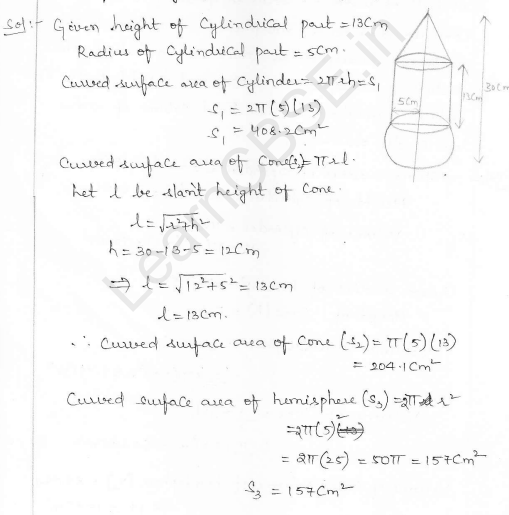 Sol:- Given height of Cylindrical part = 13Cm
Radius of Cylindrical part = 5Cm.
Curved surface area of Cylinder = 2πrh = S₁
S₁ = 2π(5)(13)
S₁ = 408.2Cm²
Curved surface area of Cone(S₂) = πrl.
Let l be slant height of Cone.
l = √r²+h²
h = 30-13-5 = 12Cm
⇒ l = √12²+5² = 13Cm
l = 13Cm.
∴ Curved surface area of Cone (S₂) = π(5)(13)
= 204.1Cm²
Curved surface area of hemisphere (S₃) = 2πr²
= 2π(5)²
= 2π(25) = 50π = 157Cm²
S₃ = 157Cm²
5Cm
13Cm
30Cm
LearnCBSE.in